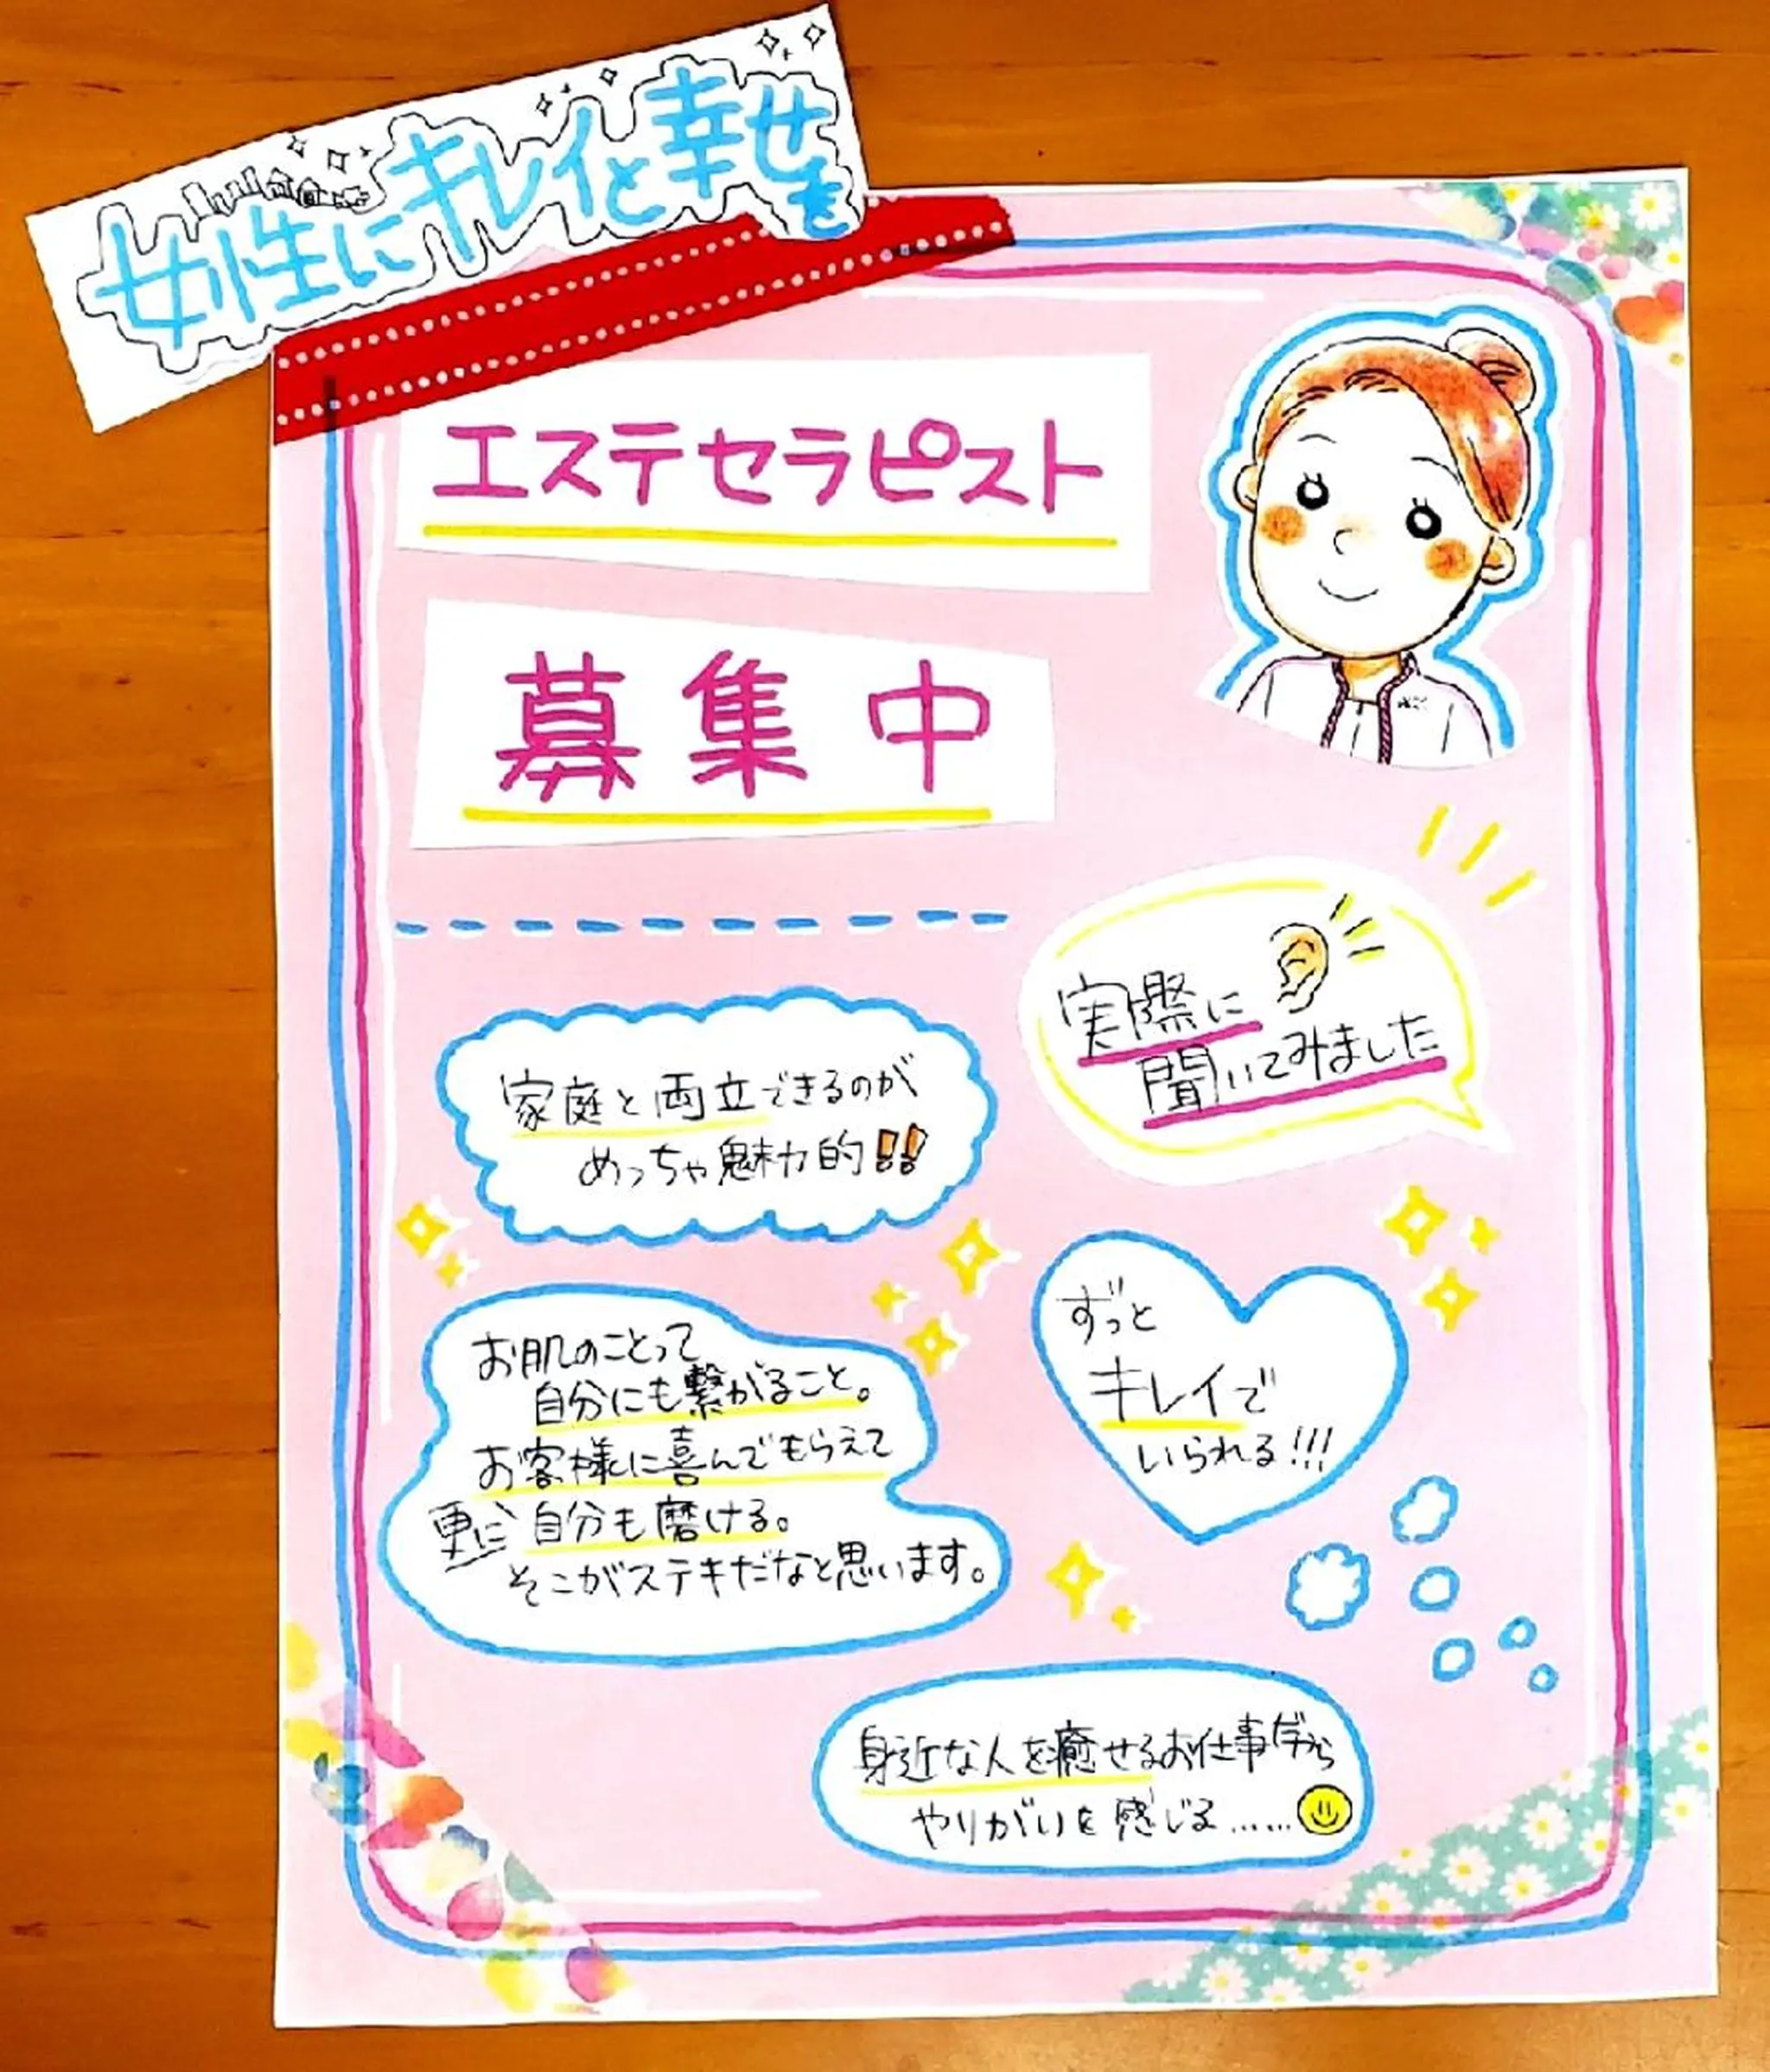 女性にキレイと幸せを
エステセラピスト
募集中
実際に
聞いてみました
家庭と両立できるのが
めっちゃ魅力的!!
お肌のことって
自分にも繋がること。
お客様に喜んでもらえて
更に自分も磨ける。
そこがステキだなと思います。
ずっと
キレイで
いられる!!!
身近な人を癒せるお仕事だから
やりがいを感じる……